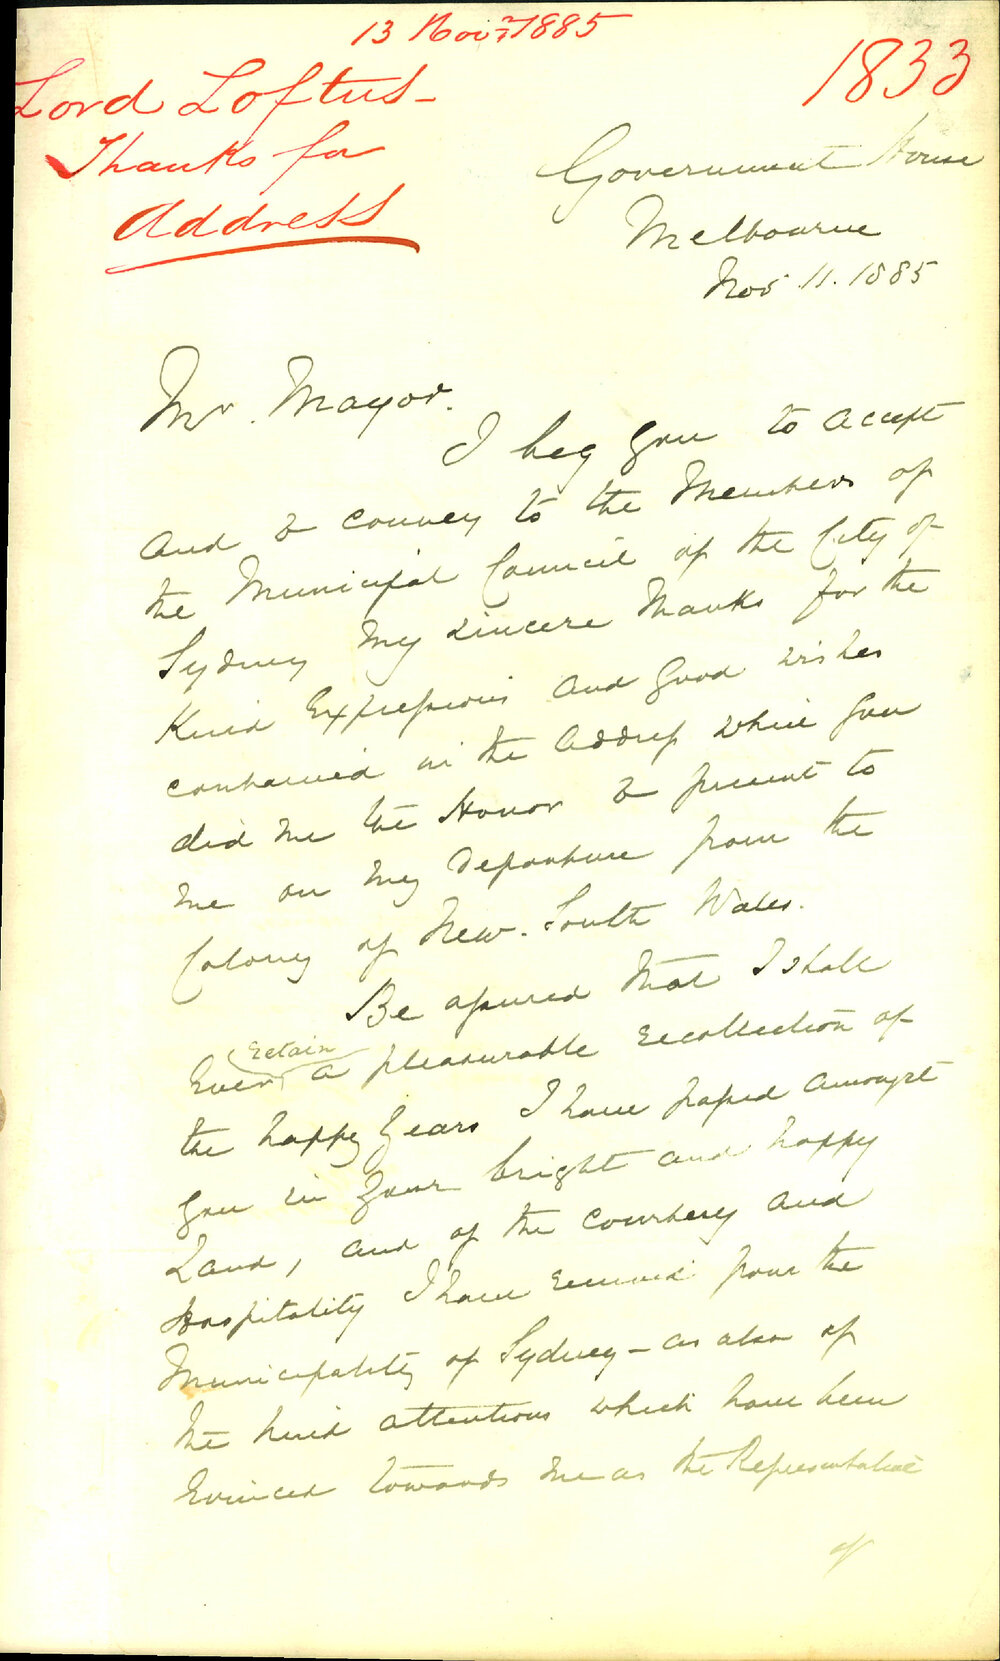 13 Novr 1885
1833
Lord Loftus -
Thanks for
Address
Government House
Melbourne
Nov 11. 1885
Mr. Mayor.
I beg you to accept
and to convey to the Members of
the Municipal Council of the City of
Sydney my sincere thanks for the
kind Expressions and good wishes
contained in the Address which you
did me the Honor to present to
me on my departure from the
Colony of New. South Wales.
Be assured that I shall
Ever retain a pleasurable recollection of
the happy years I have passed amongst
you in your bright and happy
Land, and of the courtesy and
Hospitality I have received from the
Municipality of Sydney - as also of
the kind attentions which have been
Evinced towards me as the Representative
of